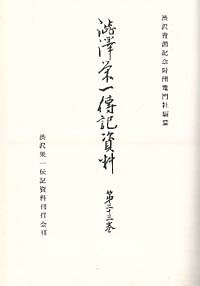 渋沢青淵記念財団竜門社編纂
澁澤榮一傳記資料
第二十三巻
渋沢栄一伝記資料刊行会刊